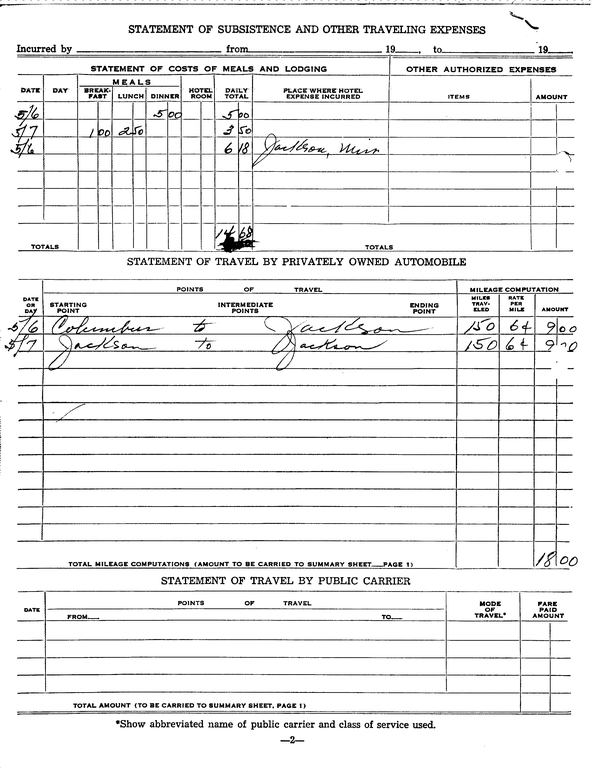 STATEMENT OF SUBSISTENCE AND OTHER TRAVELING EXPENSES
Incurred by from 19 , to 19
STATEMENT OF COSTS OF MEALS AND LODGING OTHER AUTHORIZED EXPENSES
DATE DAY MEALS HOTEL ROOM DAILY TOTAL PLACE WHERE HOTEL EXPENSE INCURRED ITEMS AMOUNT
BREAK-FAST LUNCH DINNER
5/6 5 00 5 00
5/7 1 00 2 50 3 50
5/6 6 18 Jackson, Miss
14 68
TOTALS TOTALS
STATEMENT OF TRAVEL BY PRIVATELY OWNED AUTOMOBILE
DATE OR DAY POINTS OF TRAVEL MILEAGE COMPUTATION
STARTING POINT INTERMEDIATE POINTS ENDING POINT MILES TRAV-ELED RATE PER MILE AMOUNT
5/6 Columbus to Jackson 150 6¢ 9 00
5/7 Jackson to Jackson 150 6¢ 9
TOTAL MILEAGE COMPUTATIONS (AMOUNT TO BE CARRIED TO SUMMARY SHEET PAGE 1) 18 00
STATEMENT OF TRAVEL BY PUBLIC CARRIER
DATE POINTS OF TRAVEL MODE OF TRAVEL* FARE PAID AMOUNT
FROM TO
TOTAL AMOUNT (TO BE CARRIED TO SUMMARY SHEET, PAGE 1)
*Show abbreviated name of public carrier and class of service used.
—2—